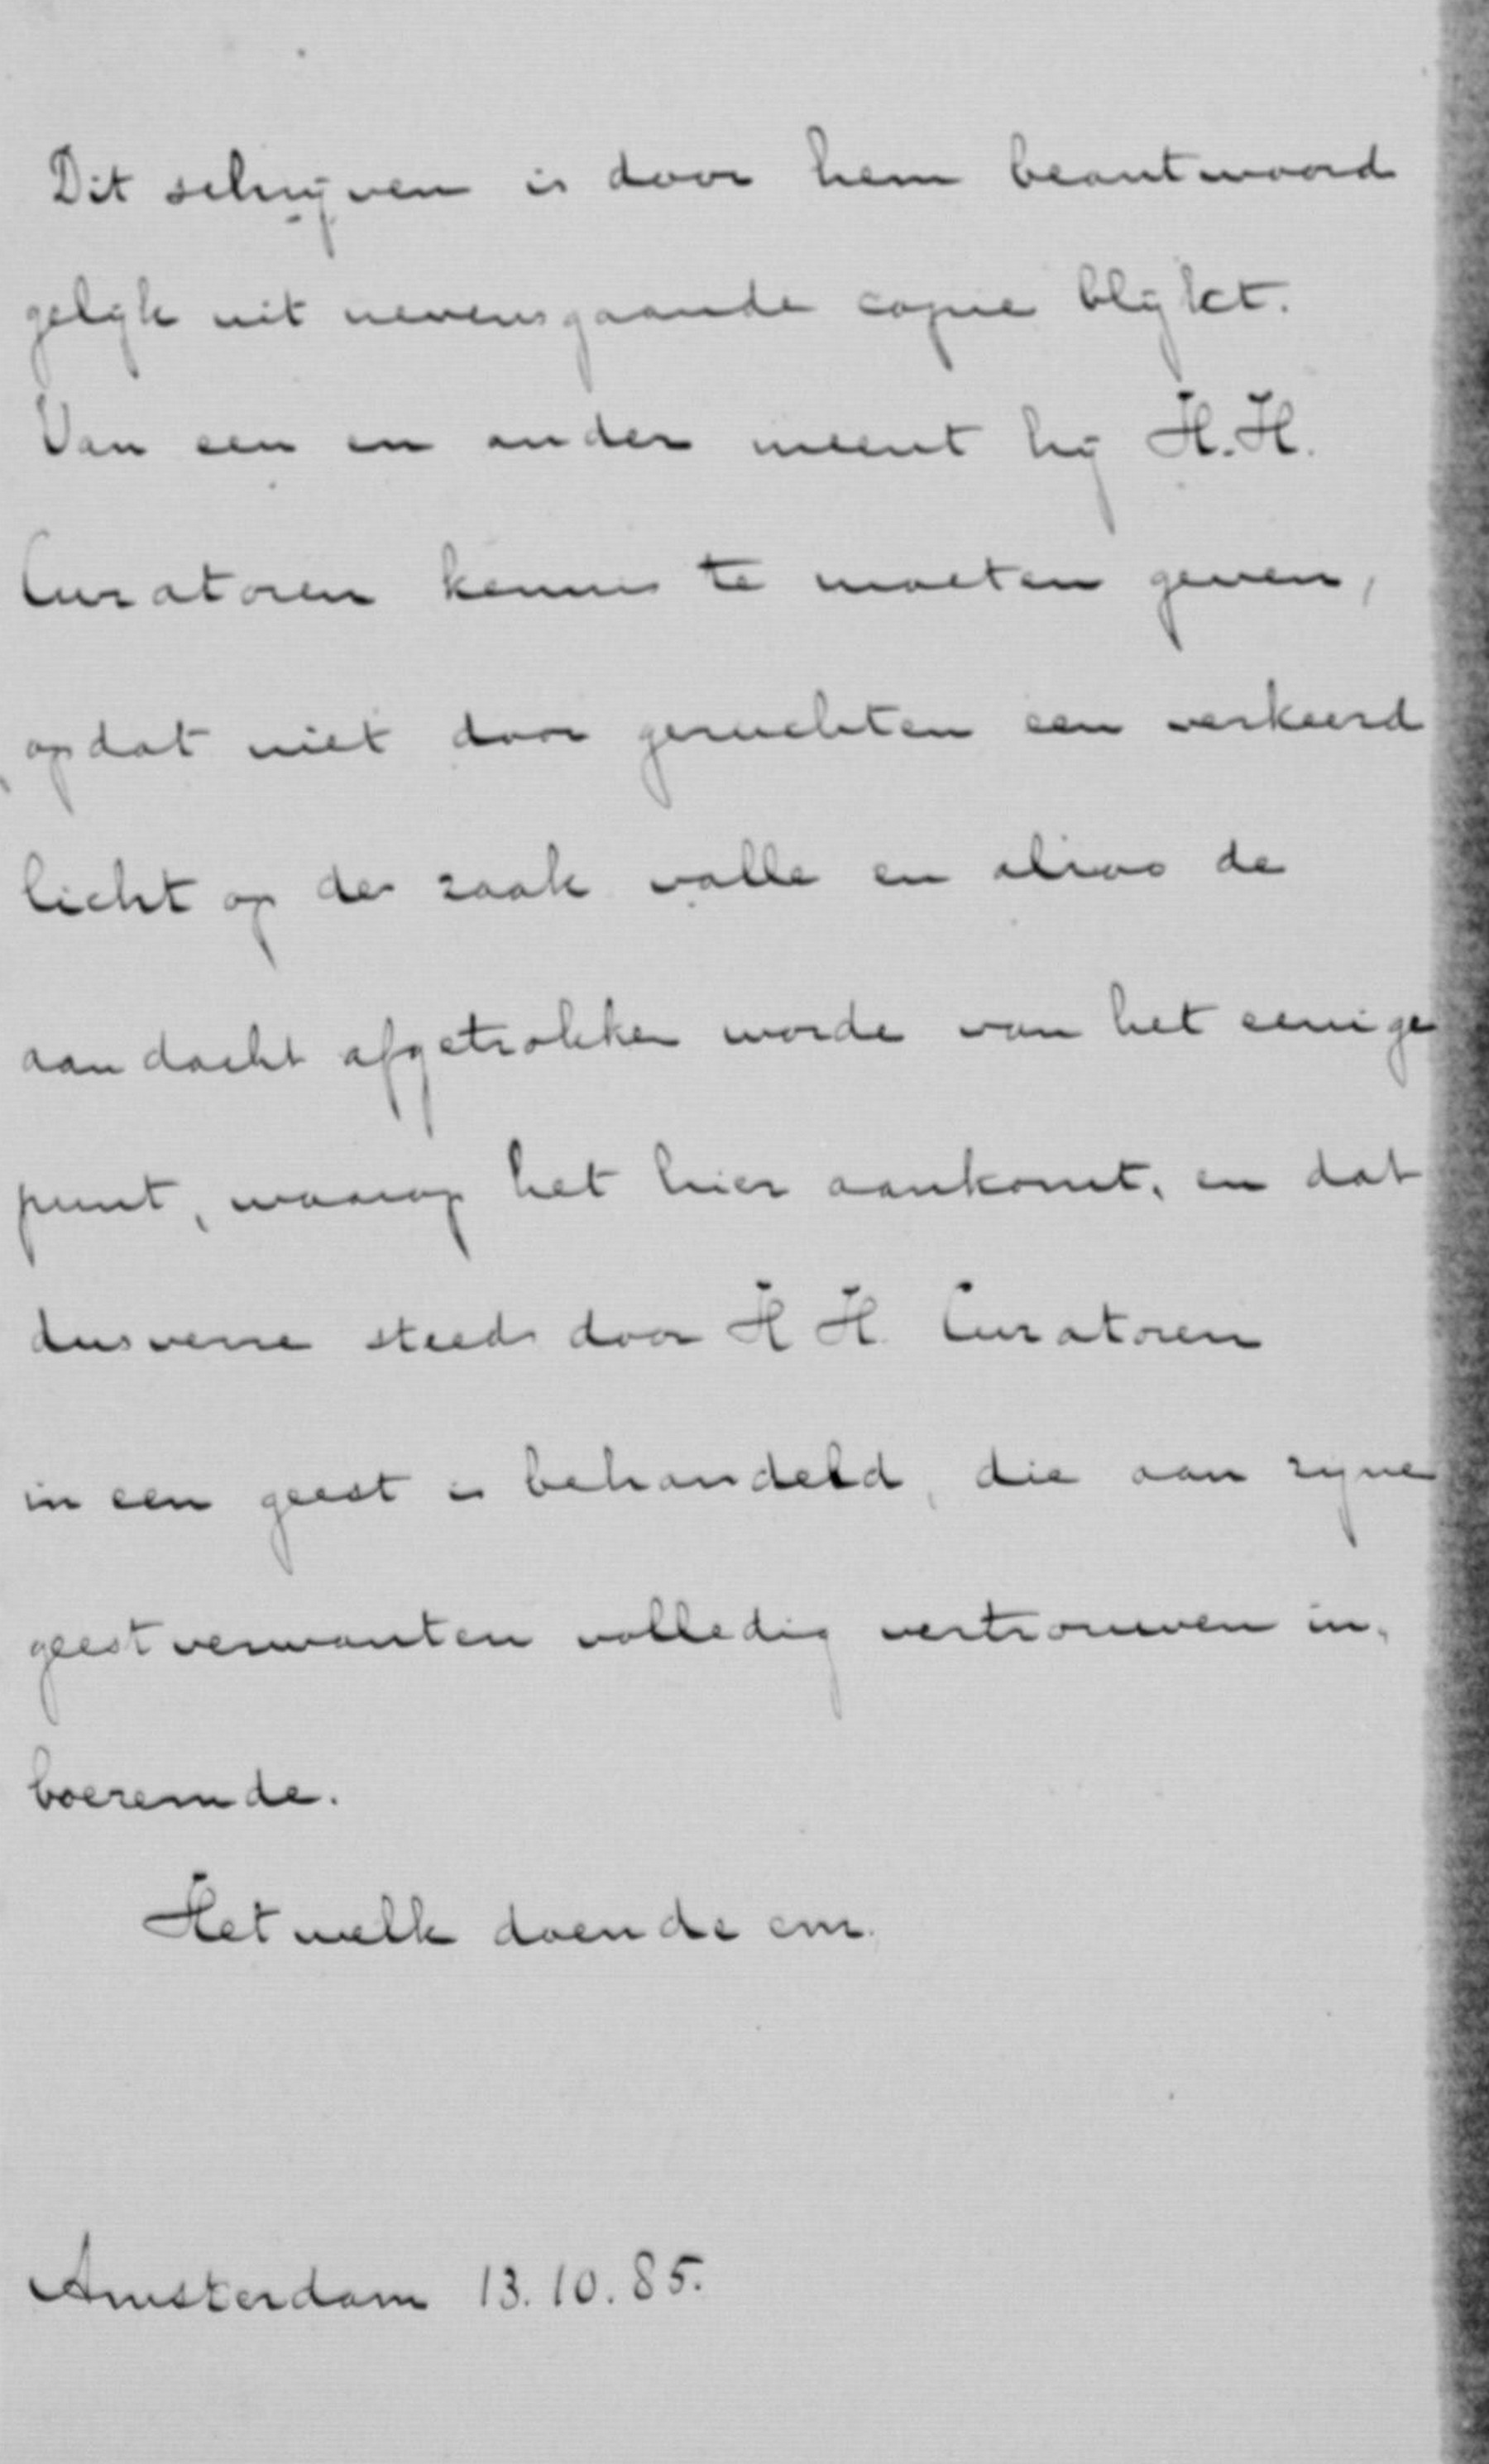 Dit schrijven is door hem beantwoord
gelijk uit nevensgaande copie blijkt.
Van een en ander meent hij H.H.
Curatoren kennis te moeten geven,
opdat niet door geruchten een verkeerd
licht op de zaak valle en alzoo de
aandacht afgetrokken worde van het eenige
punt, waarop het hier aankomt, en dat
dusverre steeds door H H Curatoren
in een geest is behandeld, die aan zijne
geestverwanten volledig vertrouwen in-
boezemde.
Hetwelk doende enz.
Amsterdam 13.10.85.